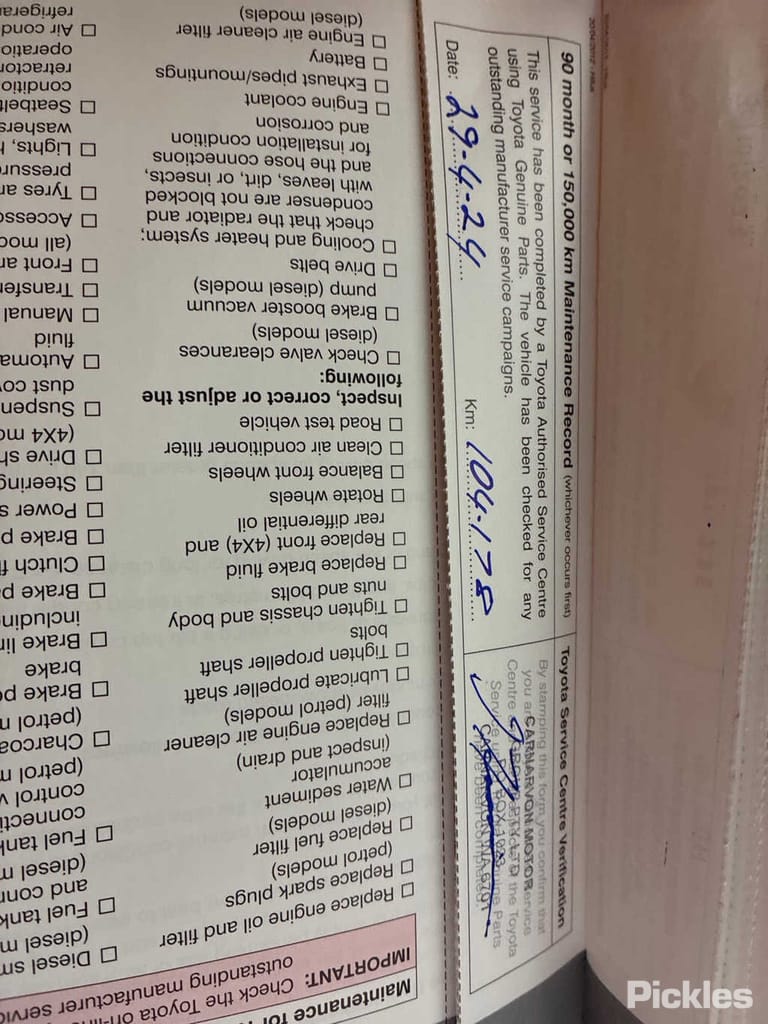 90 month or 150,000 km Maintenance Record (whichever occurs first)
This service has been completed by a Toyota Authorised Service Centre
using Toyota Genuine Parts. The vehicle has been checked for any
outstanding manufacturer service campaigns.
Date: 29-4-24 Km: 104178
Toyota Service Centre Verification
By stamping this form you confirm that
you are service
Centre the Toyota
Service Parts
CARNARVON MOTOR
PTY LTD
PO BOX
CARNARVON WA 6701
Maintenance for
IMPORTANT: Check the Toyota on-line
outstanding manufacturer
Replace engine oil and filter
Replace spark plugs
(petrol models)
Replace fuel filter
(diesel models)
Water sediment
accumulator
(inspect and drain)
Replace engine air cleaner
filter (petrol models)
Lubricate propeller shaft
Tighten propeller shaft
bolts
Tighten chassis and body
nuts and bolts
Replace brake fluid
Replace front (4X4) and
rear differential oil
Rotate wheels
Balance front wheels
Clean air conditioner filter
Road test vehicle
Inspect, correct or adjust the
following:
Check valve clearances
(diesel models)
Brake booster vacuum
pump (diesel models)
Drive belts
Cooling and heater system;
check that the radiator and
condenser are not blocked
with leaves, dirt, or insects,
and the hose connections
for installation condition
and corrosion
Engine coolant
Exhaust pipes/mountings
Battery
Engine air cleaner filter
(diesel models)
Diesel
(diesel
Fuel tank
and
(diesel
Fuel tank
control
(petrol
(petrol
Brake
brake
Brake
including
Brake
Clutch
Brake
Power
Steering
Drive
(4X4
dust
fluid
Manual
Front
(all
Tyres
Lights,
Air
operation
Pickles